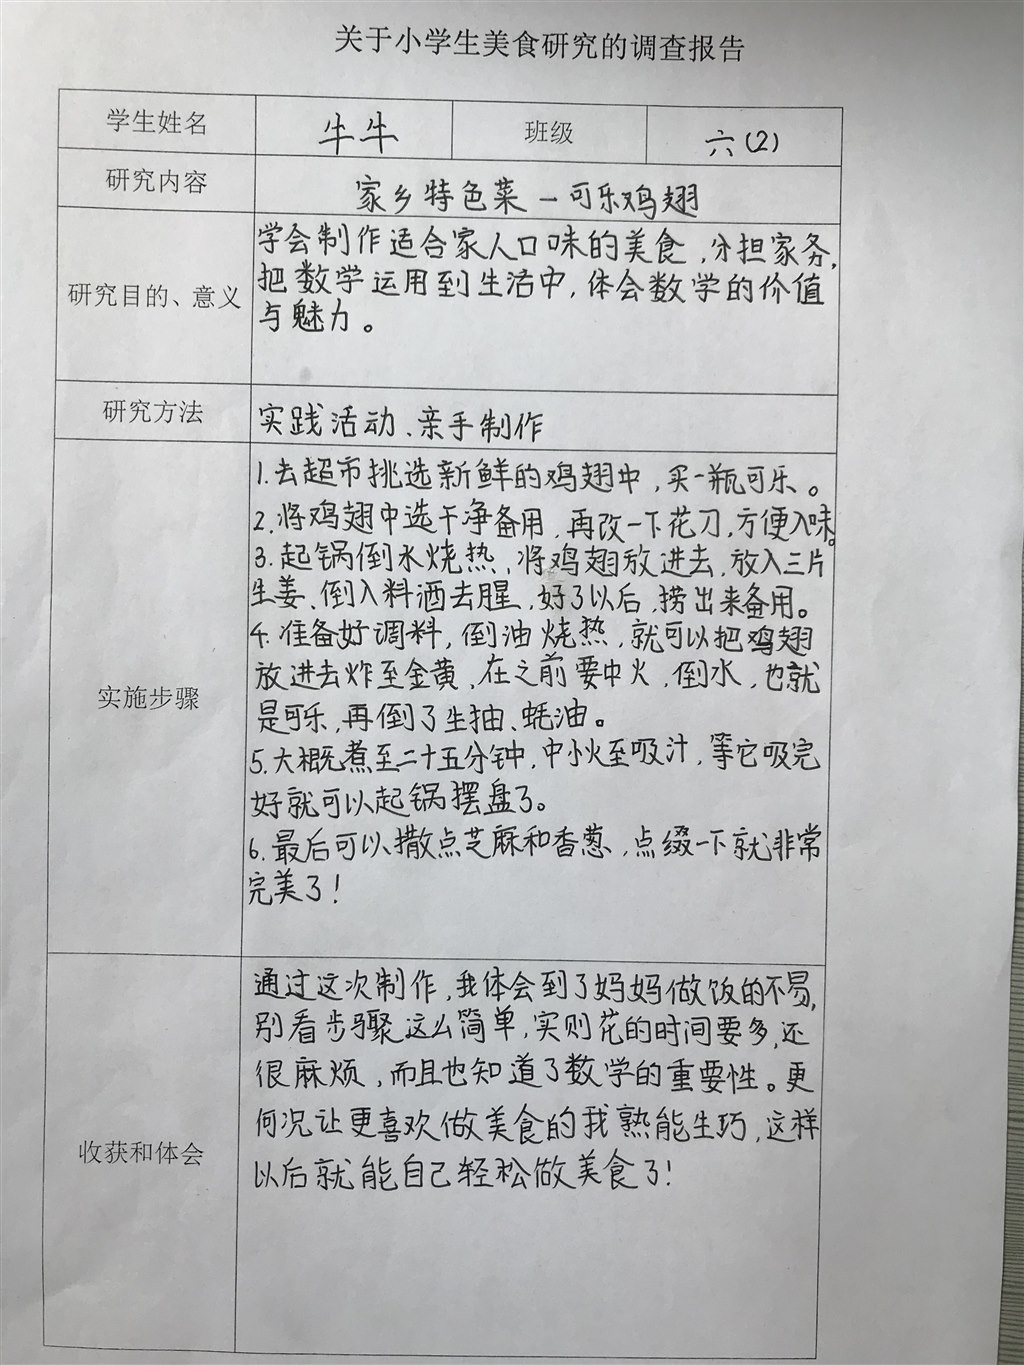 关于小学生美食研究的调查报告
学生姓名 牛牛 班级 六(2)
研究内容 家乡特色菜-可乐鸡翅
研究目的、意义
学会制作适合家人口味的美食,分担家务,
把数学运用到生活中,体会数学的价值
与魅力。
研究方法 实践活动、亲手制作
实施步骤
1.去超市挑选新鲜的鸡翅中,买一瓶可乐。
2.将鸡翅中选干净备用,再改一下花刀,方便入味。
3.起锅倒水烧热,将鸡翅放进去,放入三片
生姜、倒入料酒去腥,好了以后,捞出来备用。
4.准备好调料,倒油烧热,就可以把鸡翅
放进去炸至金黄,在之前要中火,倒水,也就
是可乐,再倒了生抽、蚝油。
5.大概煮至二十五分钟,中小火至吸汁,等它吸完
好就可以起锅摆盘了。
6.最后可以撒点芝麻和香葱,点缀一下就非常
完美了!
收获和体会
通过这次制作,我体会到了妈妈做饭的不易,
别看步骤这么简单,实则花的时间要多,还
很麻烦,而且也知道了数学的重要性。更
何况让更喜欢做美食的我熟能生巧,这样
以后就能自己轻松做美食了!